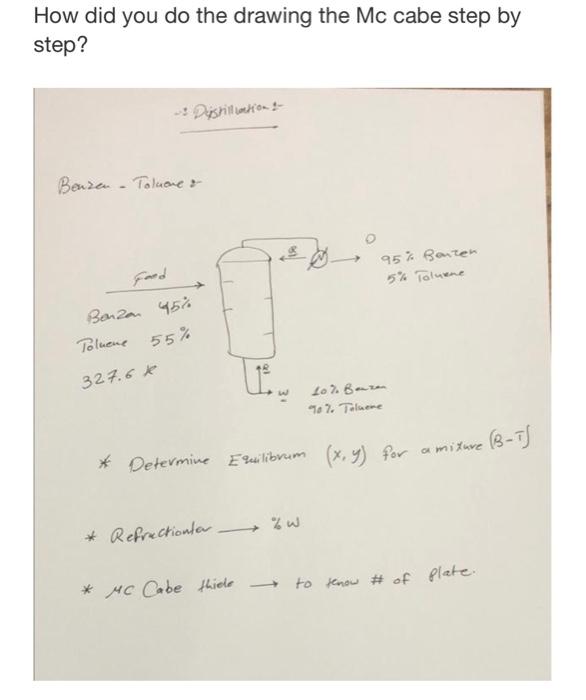 How did you do the drawing the Mc cabe step by
step?
-: Distillation :-
Benzen - Toluene :-
Feed
Benzen 45%
Toluene 55%
327.6 K
R
D
95% Benzen
5% Toluene
R
w
10% Benzen
90% Toluene
* Determine Equilibrum (x, y) for a mixture (B-T)
* Refractionter → % w
* MC Cabe thiele → to know # of plate.